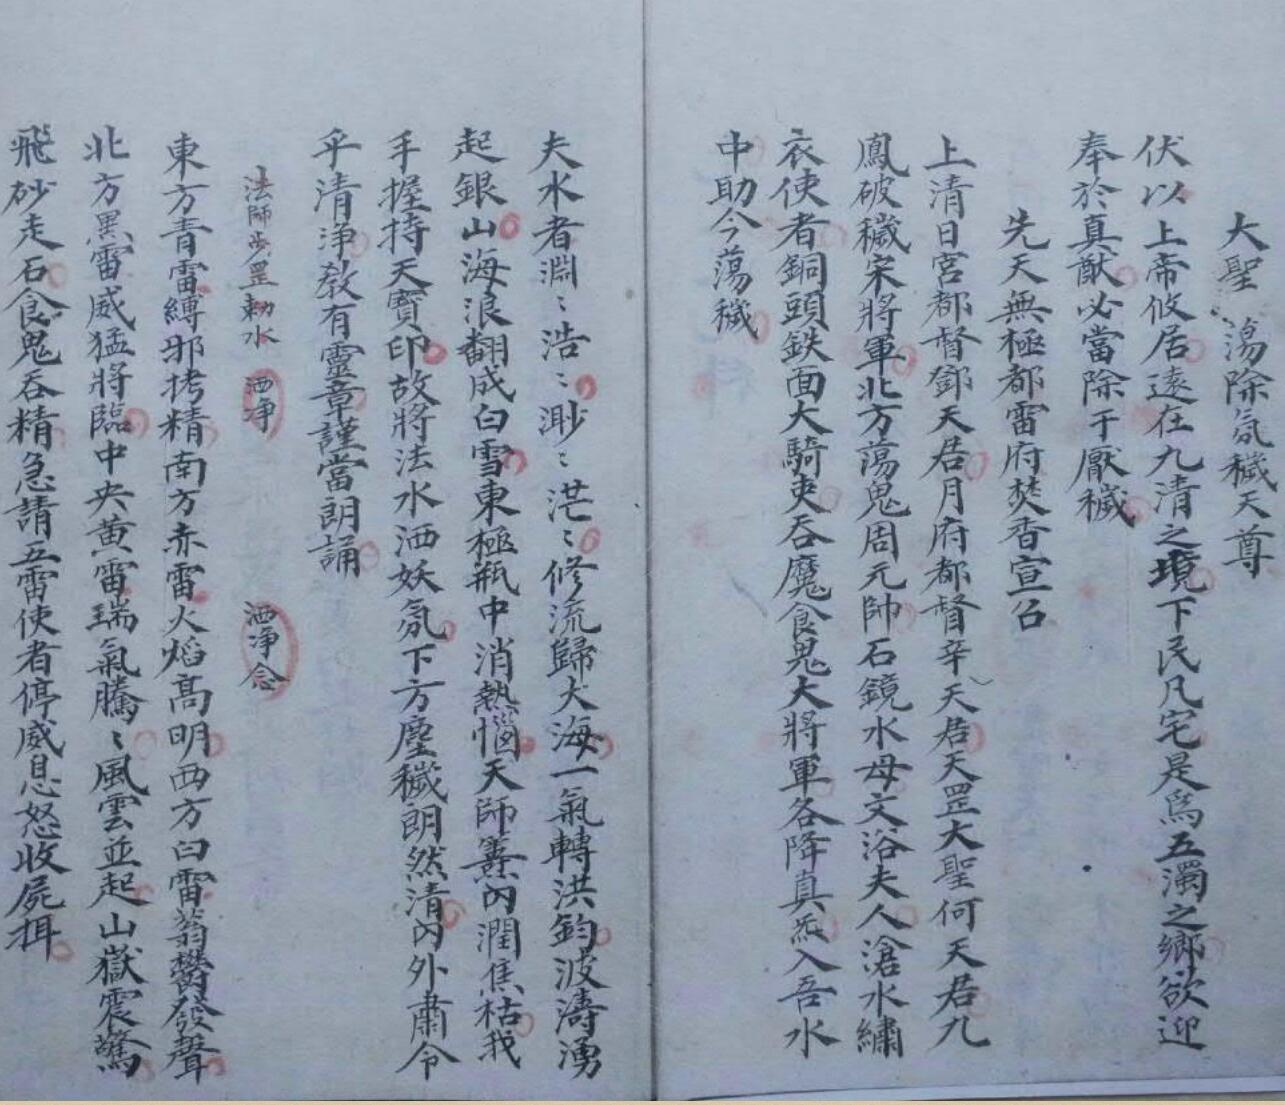 大聖 蕩除氛穢天尊
伏以上帝攸居遠在九清之境下民凡宅是爲五濁之鄉欲迎
奉於真猷必當除于厭穢
先天無極都雷府焚香宣召
上清日宮都督鄧天君月府都督辛天君天罡大聖何天君九
鳳破穢宋將軍北方蕩鬼周元帥石鏡水母文浴夫人滄水繡
衣使者銅頭鉄面大騎吏吞魔食鬼大將軍各降真炁入吾水
中助今蕩穢
夫水者淵〻浩〻渺〻茫〻修流歸大海一氣轉洪鈞波濤湧
起銀山海浪翻成白雪東極瓶中消熱惱天師嚢內潤焦枯我
手握持天寶印故將法水洒妖氛下方塵穢朗然清內外肅令
乎清淨教有靈章謹當朗誦
法師步罡勅水 洒净 洒淨念
東方青雷縛邪拷精南方赤雷火焰高明西方白雷蓊欝發聲
北方黑雷威猛將臨中央黄雷瑞氣騰〻風雲並起山嶽震驚
飛砂走石食鬼吞精急請五雷使者停威息怒收屍揖